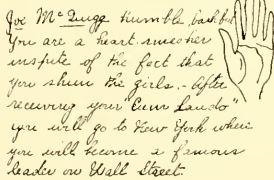 Joe McDugg humble bash but
You are a heart smasher
inspite of the fact that
you shun the girls. - After
receiving your "Cum Laudo"
you will go to New York where
you will become a famous
leader on Wall Street.